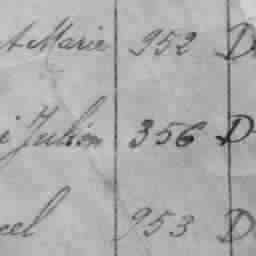 t Marie 952 D
i Julien 356 D
cel 953 D